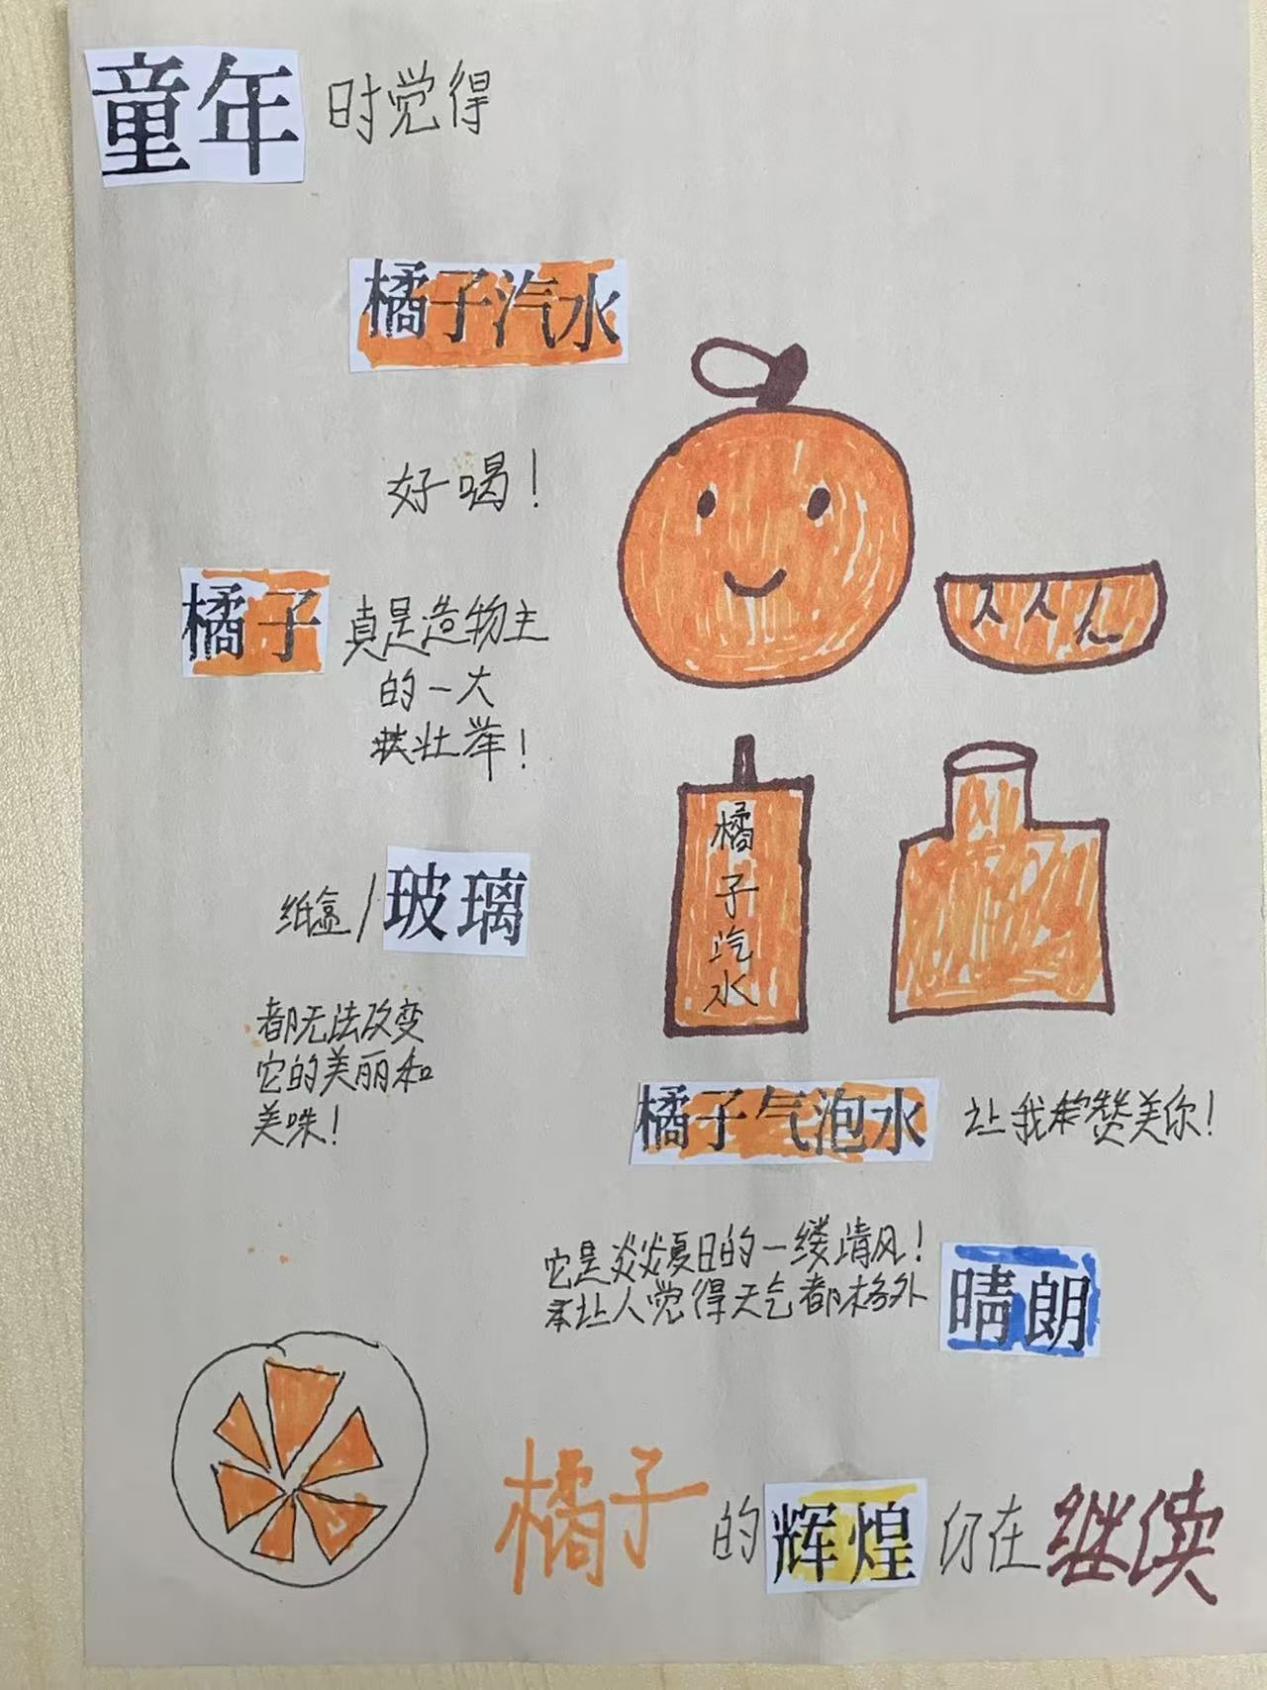 童年时觉得
橘子汽水
好喝！
橘子真是造物主
的一大
壮举！
纸盒/玻璃
都无法改变
它的美丽和
美味！
橘子汽水
橘子气泡水 让我赞美你！
它是炎炎夏日的一缕清风！
让人觉得天气都格外晴朗
橘子的辉煌仍在继续